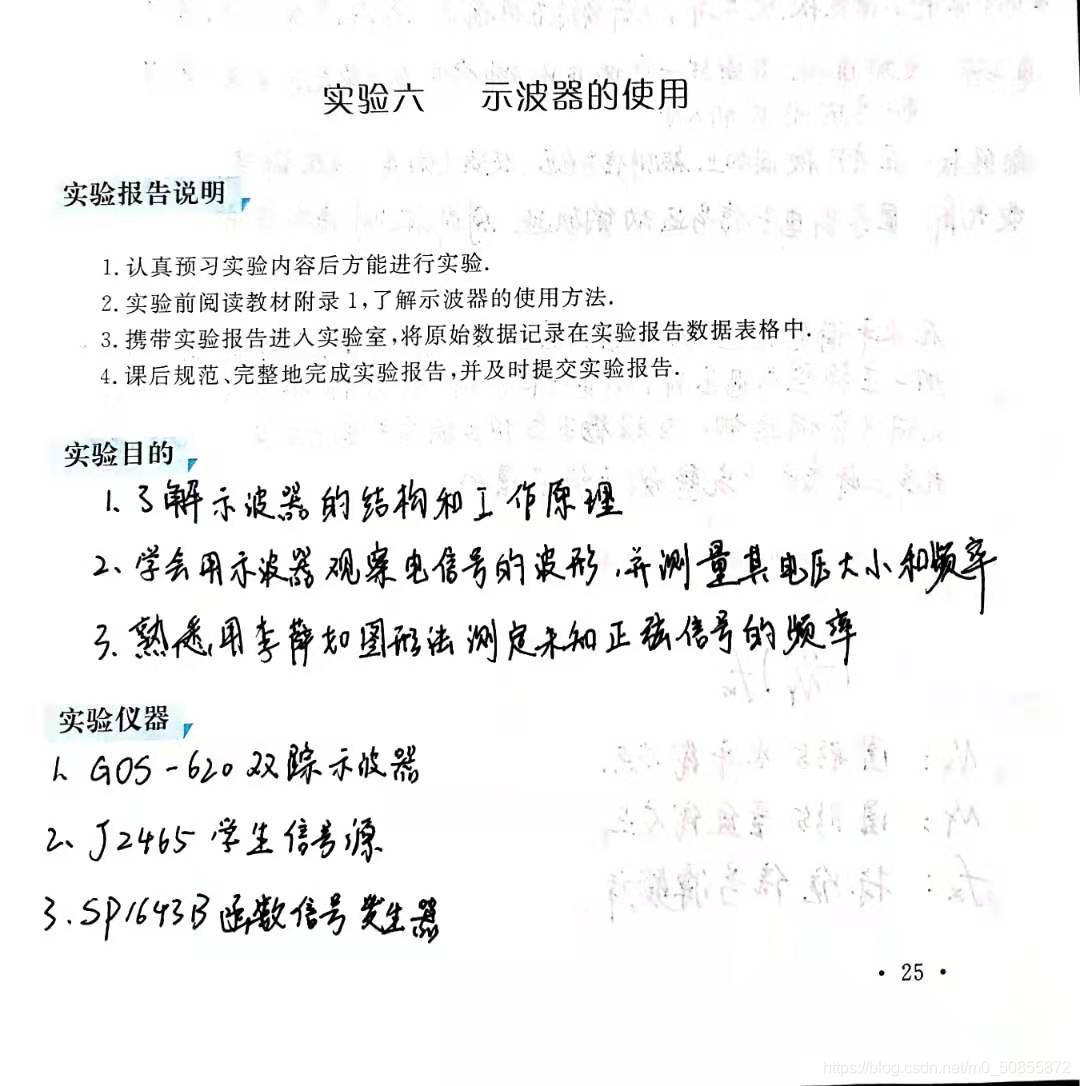 实验六 示波器的使用
实验报告说明
1.认真预习实验内容后方能进行实验.
2.实验前阅读教材附录1,了解示波器的使用方法.
3.携带实验报告进入实验室,将原始数据记录在实验报告数据表格中.
4.课后规范、完整地完成实验报告,并及时提交实验报告.
实验目的
1、了解示波器的结构和工作原理
2、学会用示波器观察电信号的波形,并测量其电压大小和频率
3、熟悉用李萨如图形法测定未知正弦信号的频率
实验仪器
1、GOS-620双踪示波器
2、J2465学生信号源
3.SP1643B函数信号发生器
· 25 ·
https://blog.csdn.net/m0_50855872